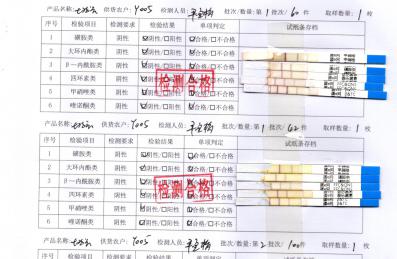 产品名称: 供货农户: Y005 检测人员: 批次/数量: 第 1 批次/ 60 件 取样数量: 1 枚
序号 检验项目 检测要求 检验结果 单项判定 试纸条存档
1 磺胺类 阴性 ☑阴性/□阳性 ☑合格/□不合格
2 大环内酯类 阴性 ☑阴性/□阳性 ☑合格/□不合格
3 β-内酰胺类 阴性 ☑阴性/□阳性 ☑合格/□不合格
4 四环素类 阴性 ☑阴性/□阳性 ☑合格/□不合格
5 甲硝唑类 阴性 ☑阴性/□阳性 ☑合格/□不合格
6 喹诺酮类 阴性 ☑阴性/□阳性 ☑合格/□不合格
检测合格
产品名称: 供货农户: Y005 检测人员: 批次/数量: 第 1 批次/ 62 件 取样数量: 1 枚
序号 检验项目 检测要求 检验结果 单项判定 试纸条存档
1 磺胺类 阴性 ☑阴性/□阳性 ☑合格/□不合格
2 大环内酯类 阴性 ☑阴性/□阳性 ☑合格/□不合格
3 β-内酰胺类 阴性 ☑阴性/□阳性 ☑合格/□不合格
4 四环素类 阴性 ☑阴性/□阳性 ☑合格/□不合格
5 甲硝唑类 阴性 ☑阴性/□阳性 ☑合格/□不合格
6 喹诺酮类 阴性 ☑阴性/□阳性 ☑合格/□不合格
检测合格
产品名称: 供货农户: Y005 检测人员: 批次/数量: 第 2 批次/ 100 件 取样数量: 1 枚